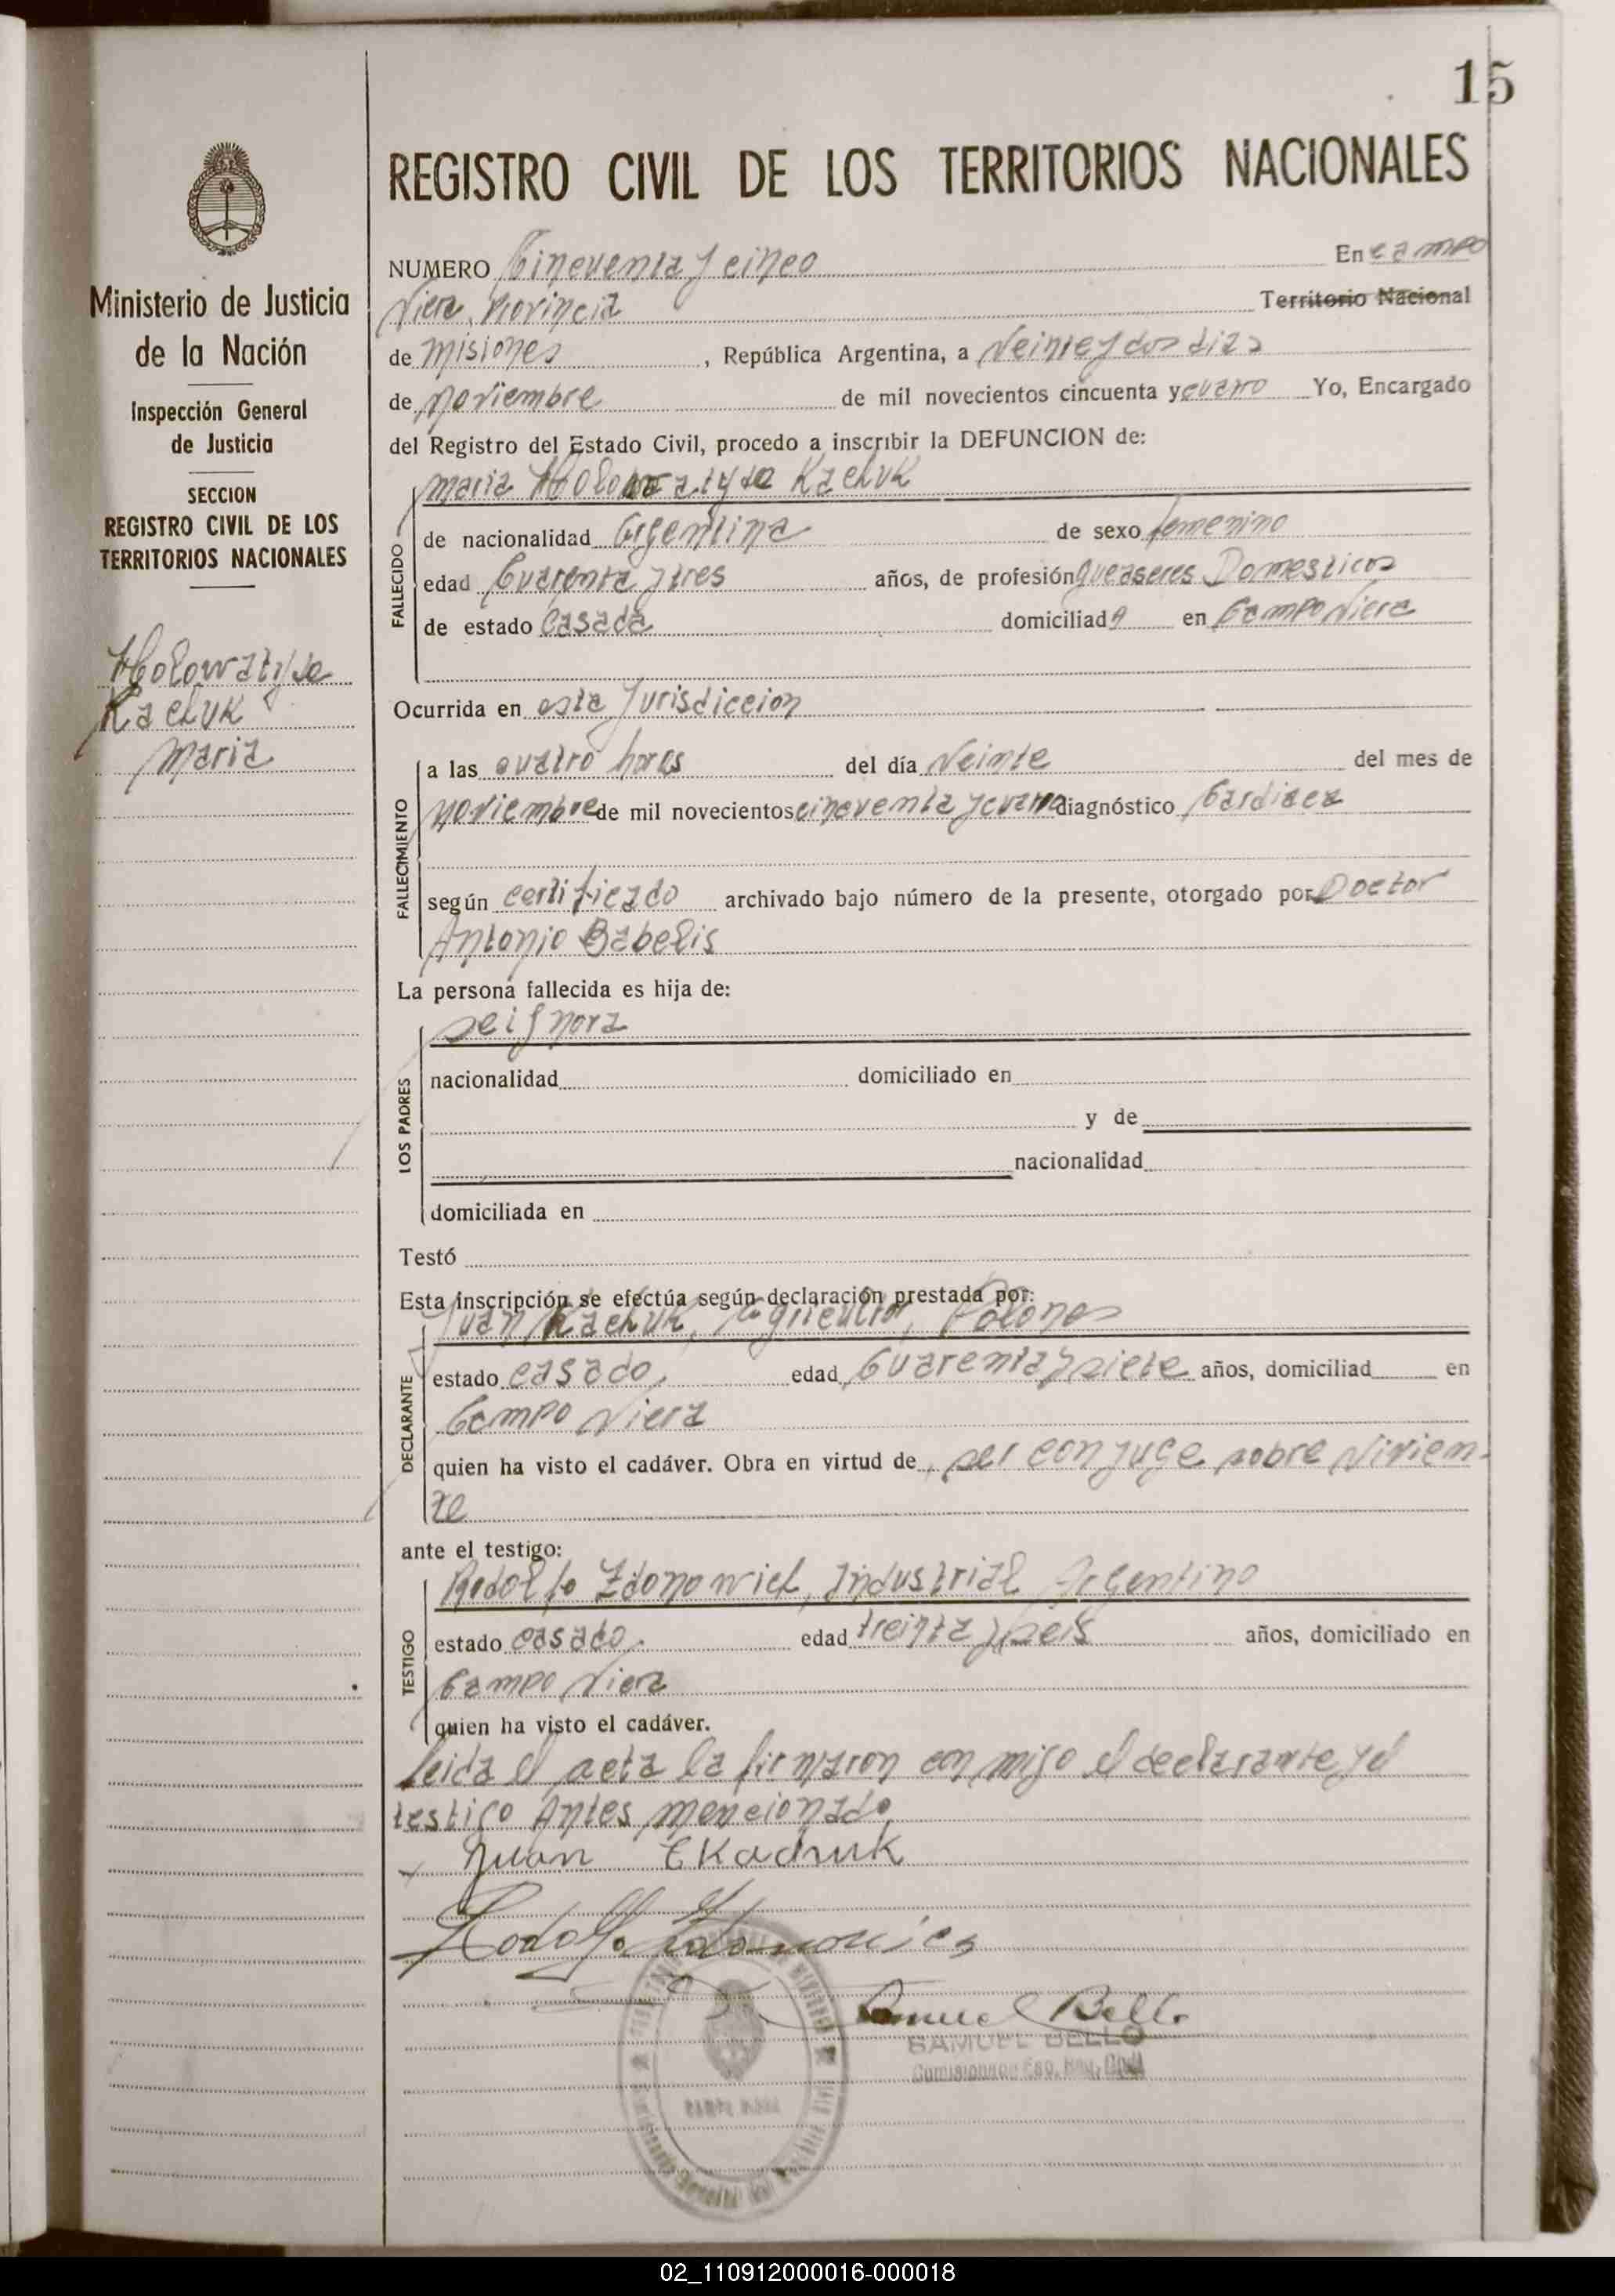 15
REGISTRO CIVIL DE LOS TERRITORIOS NACIONALES
Ministerio de Justicia
de la Nación
Inspección General
de Justicia
SECCION
REGISTRO CIVIL DE LOS
TERRITORIOS NACIONALES
Holowatyde
Kachuk
Maria
NUMERO Cincuenta y cinco En campo
Viera, Provincia Territorio Nacional
de misiones, República Argentina, a Veinte y dos dias
de noviembre de mil novecientos cincuenta y cuatro Yo, Encargado
del Registro del Estado Civil, procedo a inscribir la DEFUNCION de:
maria Holowaty de Kachuk
FALLECIDO
de nacionalidad Argentina de sexo femenino
edad Cuarenta y tres años, de profesión queaseres Domesticos
de estado Casada domiciliada en Campo Viera
Ocurrida en esta Jurisdiccion
FALLECIMIENTO
a las cuatro horas del día Veinte del mes de
noviembre de mil novecientos cincuenta y cuatro diagnóstico Cardiaca
según certificado archivado bajo número de la presente, otorgado por Doctor
Antonio Babelis
La persona fallecida es hija de:
LOS PADRES
se ignora
nacionalidad domiciliado en
y de
nacionalidad
domiciliada en
Testó
Esta inscripción se efectúa según declaración prestada por:
DECLARANTE
Juan Kachuk, Agricultor, Polones
estado casado, edad Cuarenta y siete años, domiciliad en
Campo Viera
quien ha visto el cadáver. Obra en virtud de ser conjuge sobre Vivien-
te
ante el testigo:
TESTIGO
Rodolfo Zdonowich, Industrial Argentino
estado casado, edad treinta y seis años, domiciliado en
Campo Viera
quien ha visto el cadáver.
leida el acta la firmaron con migo el declarante y el
testigo Antes mencionado
Juan
Samuel Bello
SAMUEL BELLO
02_110912000016-000018